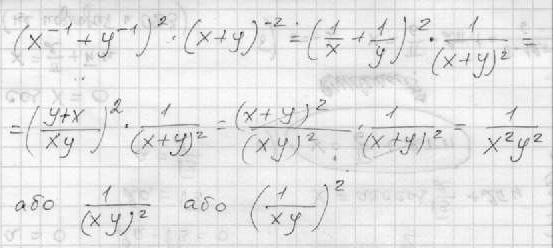 (x⁻¹ + y⁻¹)² · (x+y)⁻² = (1/x + 1/y)² · 1/(x+y)² =
= ((y+x)/(xy))² · 1/(x+y)² = (x+y)²/(xy)² · 1/(x+y)² = 1/(x²y²)
або 1/(xy)² або (1/(xy))²